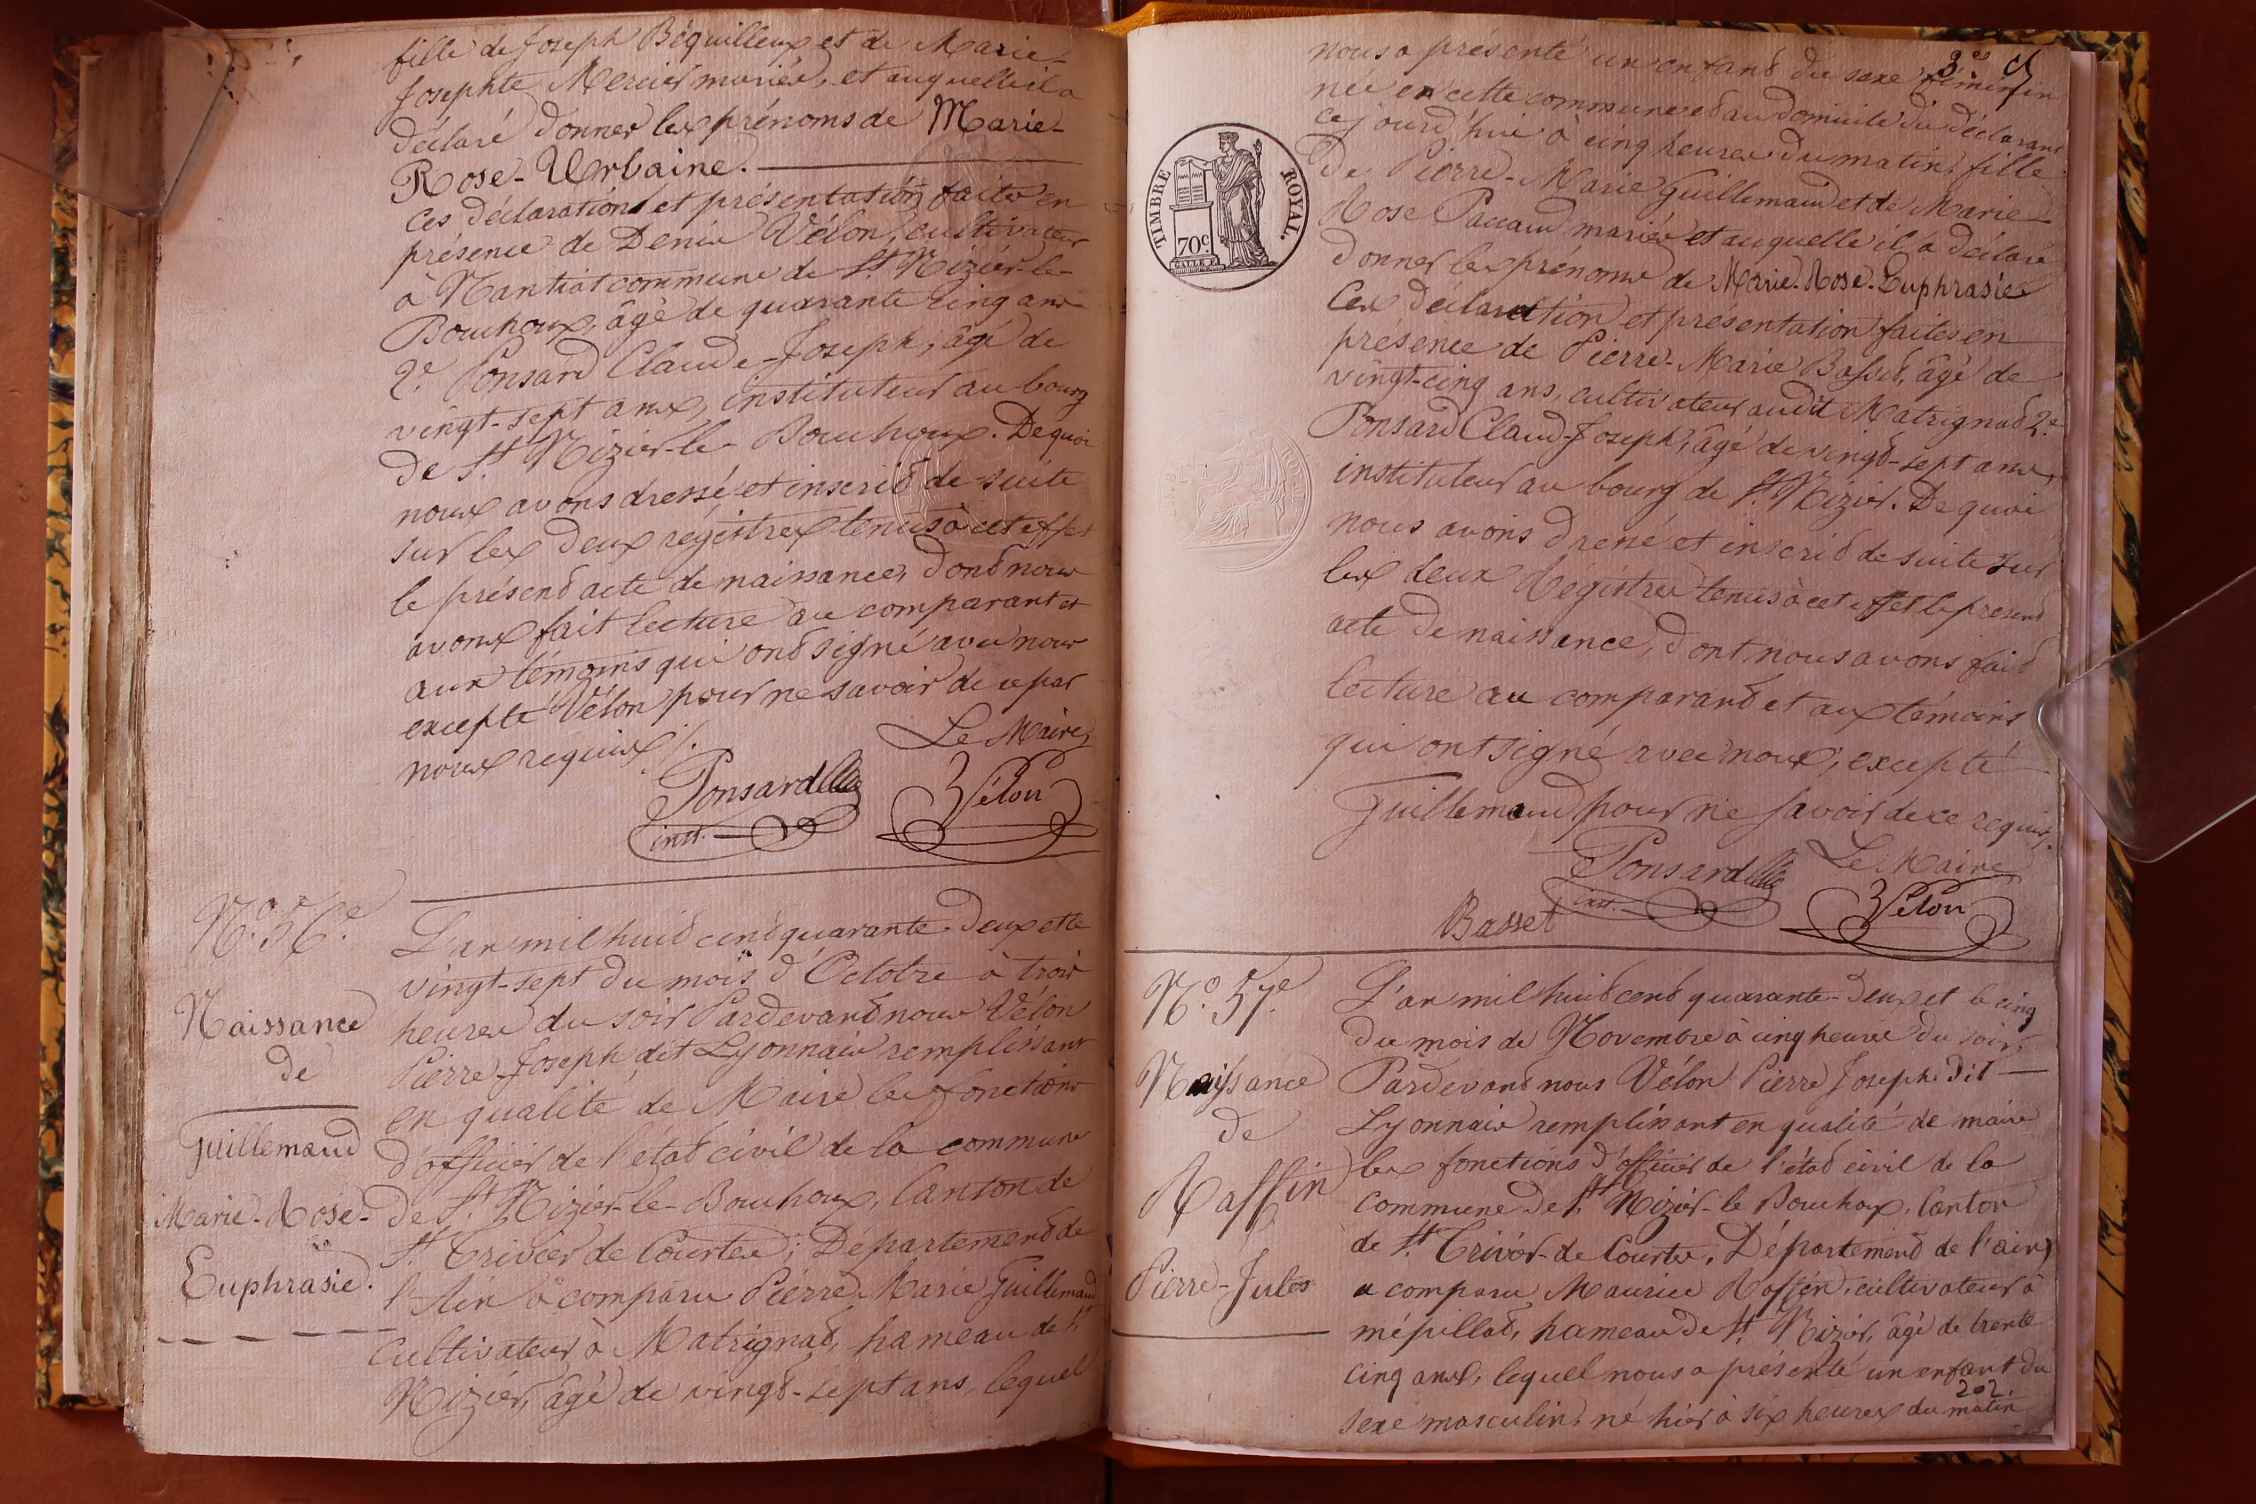 fille de Joseph Béquilleux et de Marie-
Josephte Mercier mariés, et auquelle il a
déclaré donner les prénoms de Marie-
Rose-Urbaine.
Ces déclaration et présentation faites en
présence de Denis Vélon, cultivateur
à Nantiat commune de St. Nizier-le-
Bouchoux, âgé de quarante cinq ans
2e. Ponsard Claude-Joseph, âgé de
vingt-sept ans, instituteur au bourg
de St. Nizier-le-Bouchoux. De quoi
nous avons dressé et inscrit de suite
sur les deux régistres tenus à cet effet
le présent acte de naissance, dont nous
avons fait lecture au comparant et
aux témoins qui ont signé avec nous
excepté Vélon pour ne savoir de ce par
nous requis ./.
Le Maire,
Ponsard
inst.
Vélon
No. 56e.
Naissance
de
Guillemaud
Marie-Rose-
Euphrasie.
L'an mil huit cent quarante-deux et le
vingt-sept du mois d'Octobre à trois
heures du soir Pardevant nous Vélon
Pierre-Joseph dit Lyonnais remplissant
en qualité de Maire les fonctions
d'officier de l'état civil de la commune
de St. Nizier-le-Bouchoux, Canton de
St. Trivier de Courtes; Département de
l'Ain a comparu Pierre Marie Guillemaud
Cultivateur à Matrignat, hameau de St.
Nizier, âgé de vingt-sept ans, lequel
3e
nous a présenté un enfant du sexe féminin
née en cette commune et au domicile du déclarant
ce jourd'hui à cinq heures du matin, fille
de Pierre-Marie Guillemaud et de Marie
Rose Paccaud mariés et auquelle il a déclaré
donner les prénoms de Marie-Rose-Euphrasie
Ces déclaration et présentation faites en
présence de Pierre-Marie Basset, âgé de
vingt-cinq ans, cultivateur audit Matrignat 2e.
Ponsard Claud-Joseph, âgé de vingt-sept ans,
instituteur au bourg de St. Nizier. De quoi
nous avons dressé et inscrit de suite sur
les deux Régistres tenus à cet effet le présent
acte de naissance, dont nous avons fait
lecture au comparant et aux témoins
qui ont signé avec nous, excepté
Guillemaud pour ne savoir de ce requis.
TIMBRE ROYAL.
70c.
Ponsard
inst.
Le Maire
Basset
Vélon
No. 57e.
Naissance
de
Raffin
Pierre-Jules
L'an mil huit cent quarante-deux et le cinq
du mois de Novembre à cinq heures du soir,
Pardevant nous Vélon Pierre Joseph dit
Lyonnais remplissant en qualité de maire
les fonctions d'officier de l'état civil de la
commune de St. Nizier-le Bouchoux, Canton
de St. Trivier-de Courtes, Département de l'ain,
a comparu Maurice Raffin, cultivateur à
mépillat, hameau de St. Nizier, âgé de trente
cinq ans, lequel nous a présenté un enfant du
sexe masculin, né hier à six heures du matin
202.